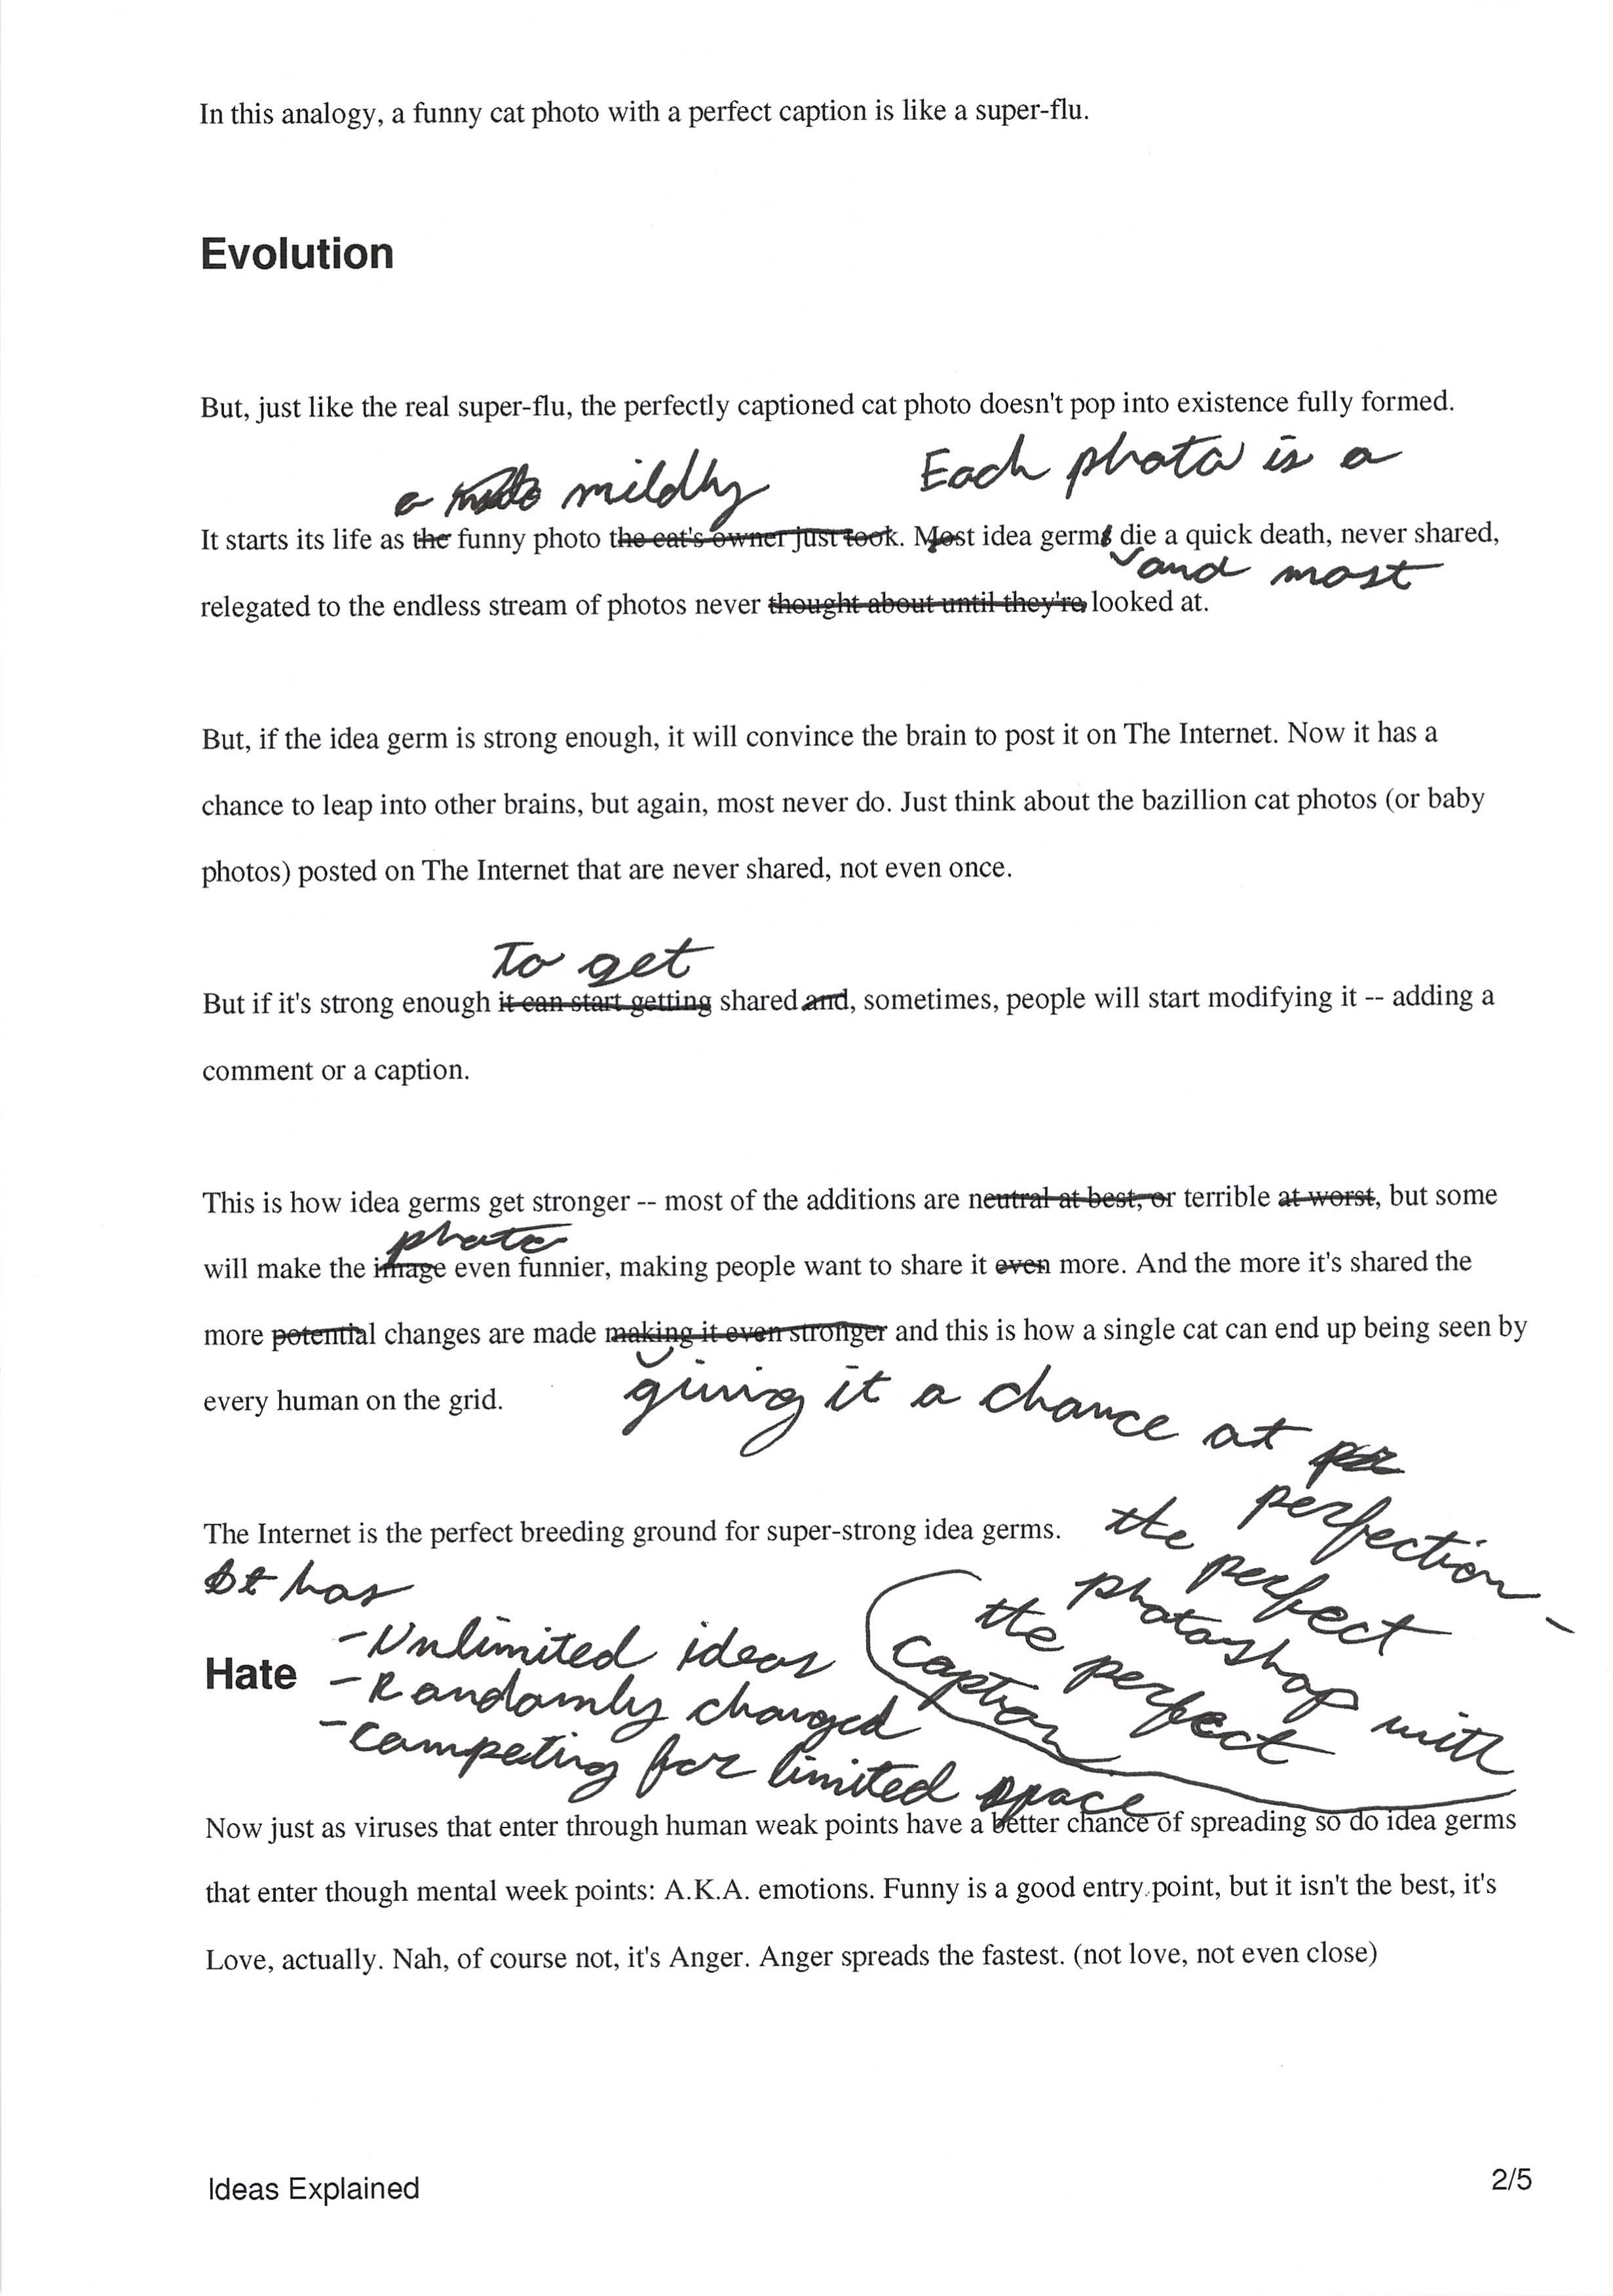 In this analogy, a funny cat photo with a perfect caption is like a super-flu.
Evolution
But, just like the real super-flu, the perfectly captioned cat photo doesn't pop into existence fully formed.
a mildly Each photo is a
It starts its life as the funny photo the cat's owner just took. Most idea germs die a quick death, never shared,
and most
relegated to the endless stream of photos never thought about until they're looked at.
But, if the idea germ is strong enough, it will convince the brain to post it on The Internet. Now it has a
chance to leap into other brains, but again, most never do. Just think about the bazillion cat photos (or baby
photos) posted on The Internet that are never shared, not even once.
To get
But if it's strong enough it can start getting shared and, sometimes, people will start modifying it -- adding a
comment or a caption.
This is how idea germs get stronger -- most of the additions are neutral at best, or terrible at worst, but some
photo
will make the image even funnier, making people want to share it even more. And the more it's shared the
more potential changes are made making it even stronger and this is how a single cat can end up being seen by
every human on the grid.
giving it a chance at
perfection -
The Internet is the perfect breeding ground for super-strong idea germs.
the perfect
photoshop with
the perfect
caption
It has
- Unlimited ideas
Hate
- Randomly changed
- Competing for limited space
Now just as viruses that enter through human weak points have a better chance of spreading so do idea germs
that enter though mental week points: A.K.A. emotions. Funny is a good entry point, but it isn't the best, it's
Love, actually. Nah, of course not, it's Anger. Anger spreads the fastest. (not love, not even close)
Ideas Explained
2/5